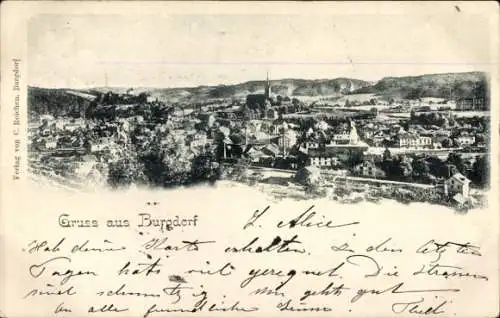 Verlag von C. Reichen, Burgdorf
Gruss aus Burgdorf
L. Alice
Hab deine Karte erhalten. In den letzten
Tagen hats viel geregnet. Die Strassen
sind schmutzig. Mir gehts gut.
an alle freundliche